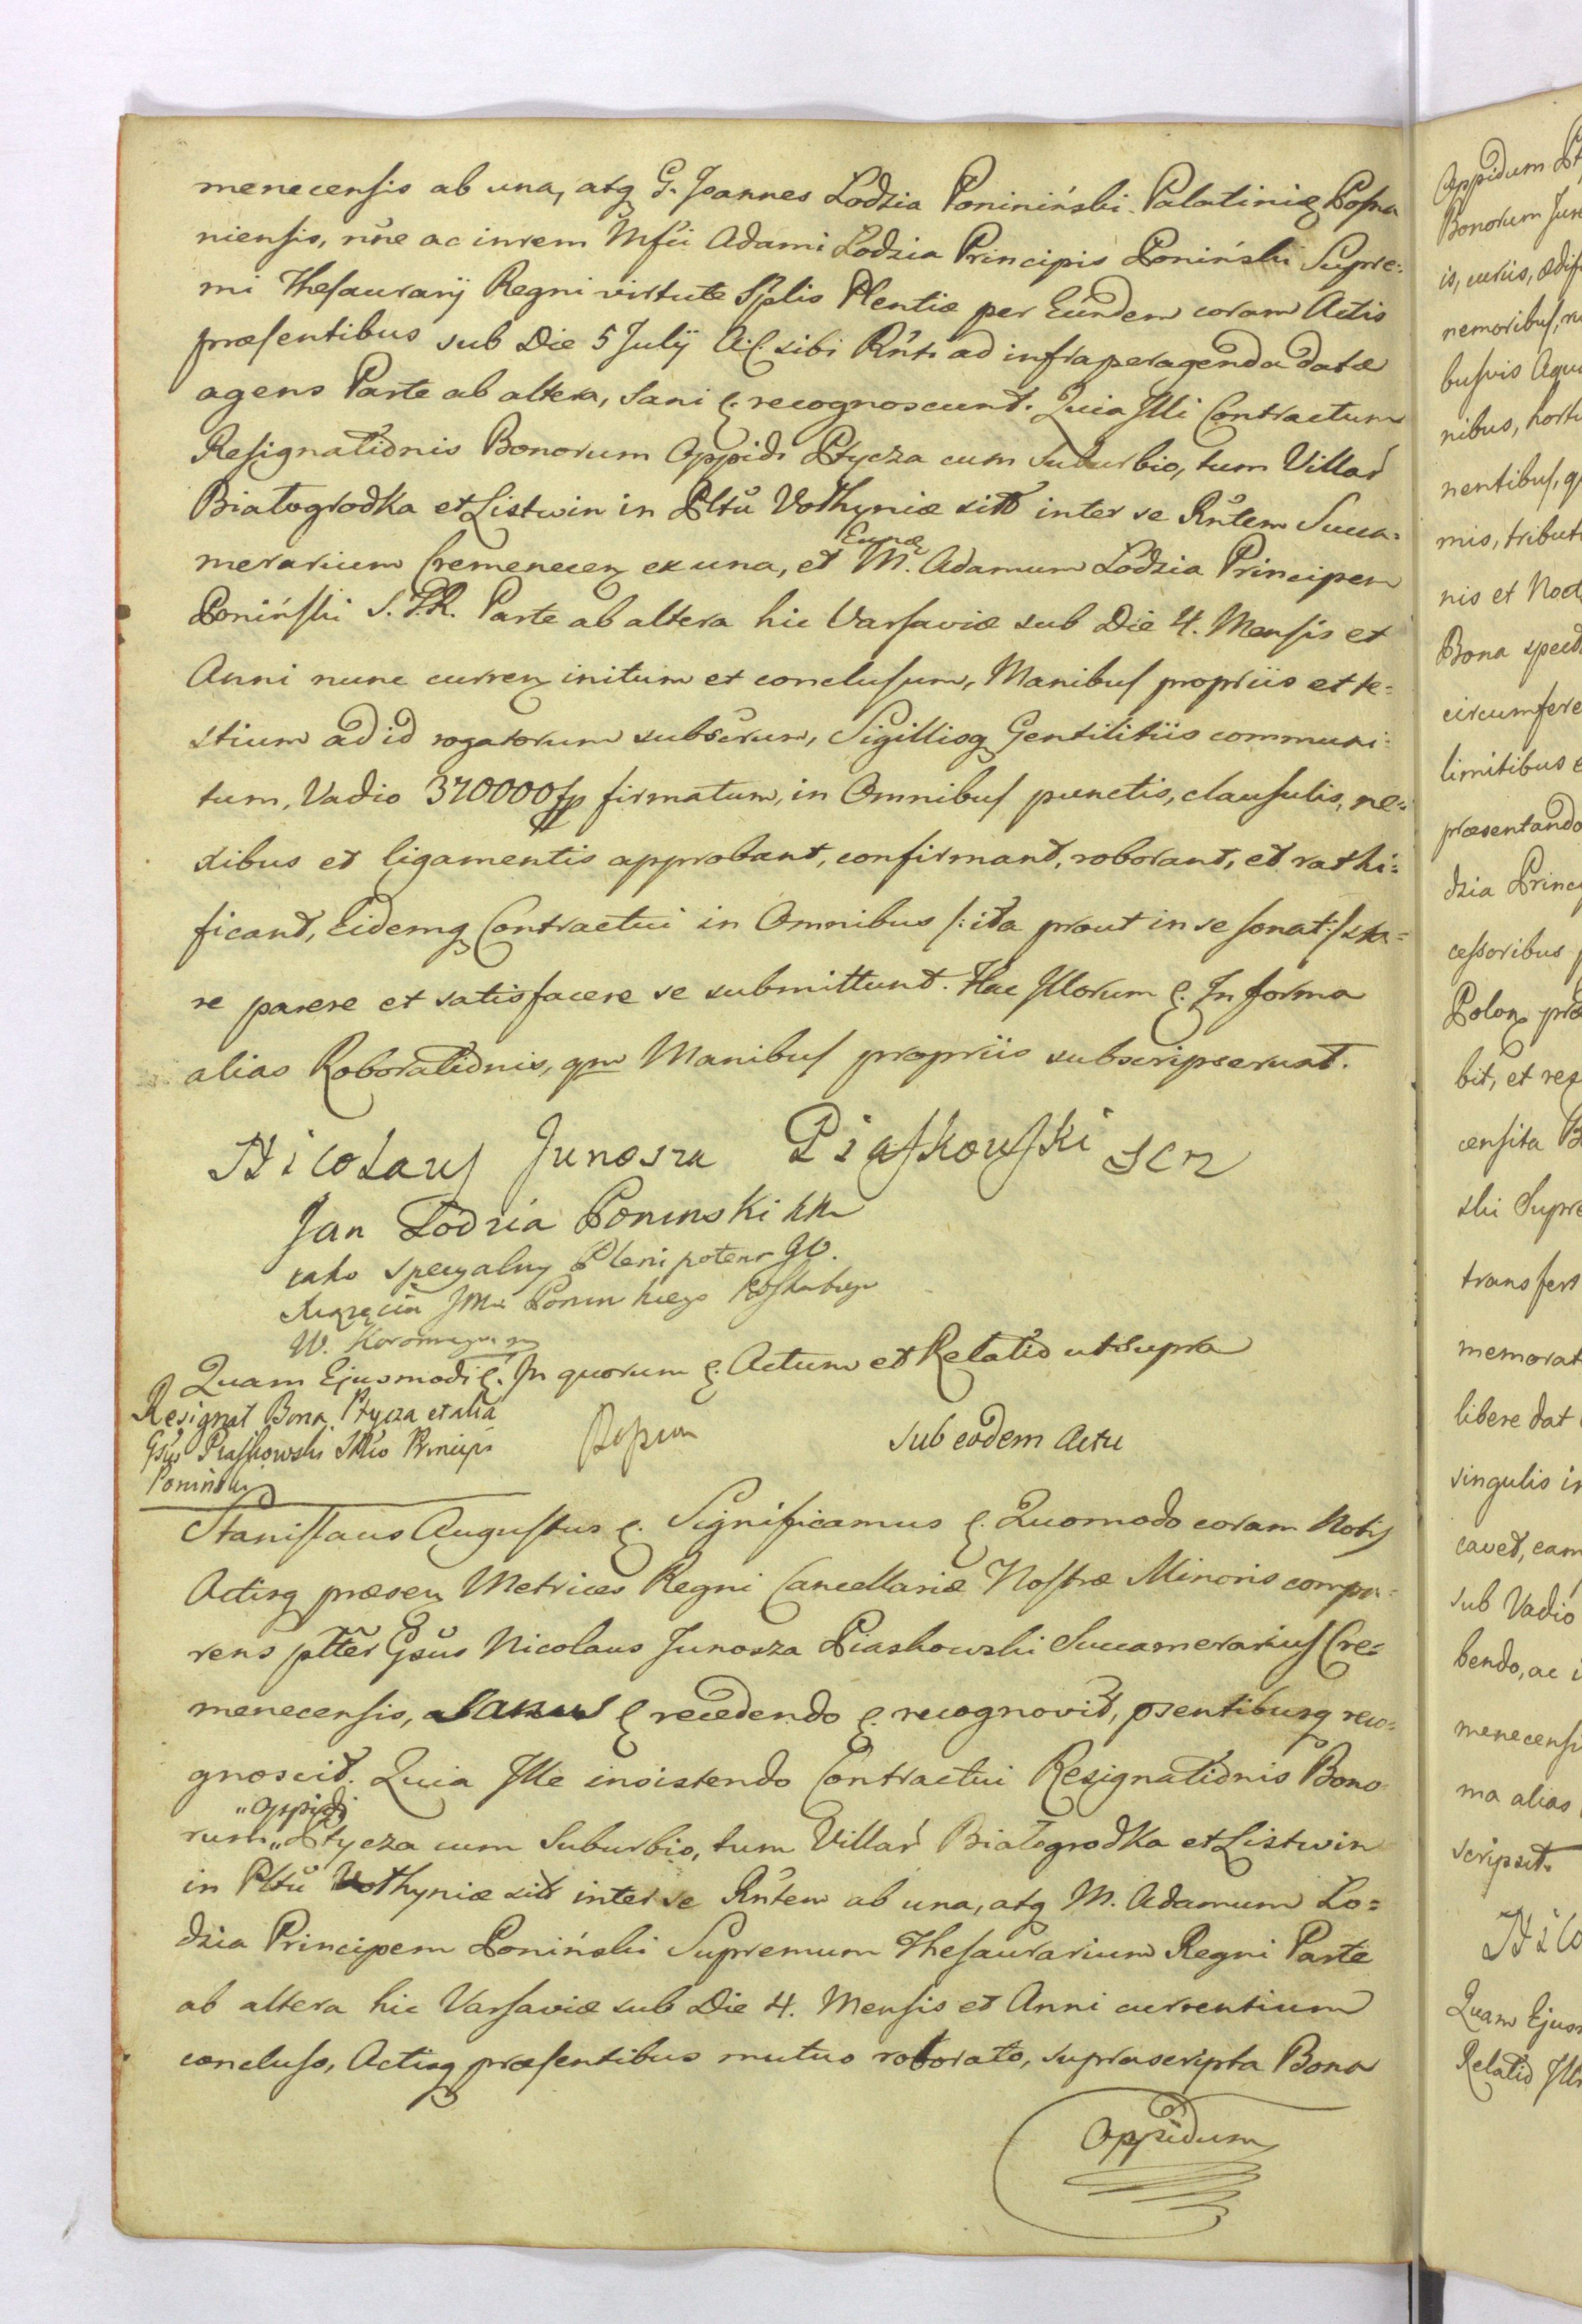 menecensis ab una, atq G. Joannes Lodzia Poniniński Palatiniz Posna
niensis, nne ac in rem Mfci Adami Lodzia Principis Poniński Supre:
mi Thesaurarij Regni virtute Splis Plentiæ per Eundem coram Actis
præsentibus sub Die 5 Julij A. C. sibi Rnti ad infra peragenda datæ
agens Parte ab altera, Sani &. recognoscunt. Quia Illi Contractum
Resignationis Bonorum Oppidi Ptycza cum Suburbio, tum Villar
Białogrodka et Listwin in Pltu Volhyniæ sit inter se Rntem Succa:
merarium Cremenecen ex una, et Eundq M. Adamum Lodzia Principem
Poniński S. T. R. Parte ab altera hic Varsaviæ sub Die 4. Mensis et
Anni nunc curren initum et conclusum, Manibus propriis et te:
stium ad id rogatorum subscrum, Sigillisq Gentilitiis communi:
tum, Vadio 370000 fp firmatum, in Omnibus punctis, clausulis, ne:
xibus et ligamentis approbant, confirmant, roborant, et rathi:
ficant, Eidemq Contractui in Omnibus /: ita prout in se sonat :/ sta:
re parere et satisfacere se submittunt. Hac Illorum &. In forma
alias Roborationis, qm Manibus propriis subscripserunt.
Nicolaus Junosza Piaskowski SCR
Jan Łodzia Poninski
iako specyalny Plenipotent JO.
Xiązęcia Jmci Ponin kiego Podskarbiego
W. Koronnego
Quam Ejusmodi &. In quorum &. Actum et Relatio ut supra
Resignat Bona Ptycza et alia
Gsus Piaskowski Mfco Principi
Poniński
sub eodem Actu
Stanislaus Augustus &. Significamus &. Quomodo coram Nobis
Actisq præsen Metrices Regni Cancellariæ Nostræ Minoris compa:
rens pltter Gsus Nicolaus Junosza Piaskowski Succamerarius Cre:
menecensis, Sanus & recedendo &. recognovit, psentibusq reco:
gnoscit. Quia Ille insistendo Contractui Resignationis Bono
rum „Oppidi Ptycza cum Suburbio, tum Villar Białogrodka et Listwin
in Pltu Volhyniæ sit inter se Rntem ab una, atq M. Adamum Lo:
dzia Principem Poniński Supremum Thesaurarium Regni Parte
ab altera hic Varsaviæ sub Die 4. Mensis et Anni currentium
concluso, Actisq præsentibus mutuo roborato, suprascripta Bona
Oppidum
Oppidum
Bonorum
is, curiis,
nemoribus,
busvis
nibus,
nentibus,
mis,
nis et
Bona
limitibus
præsentando
dzia
cessoribus
Polon
bit, et
censita
ski
memorat
libere dat
singulis
cavet, eam
sub Vadio
bendo, ac
menecensi
ma alias
scripsit.
Nico
Quam
Relatio